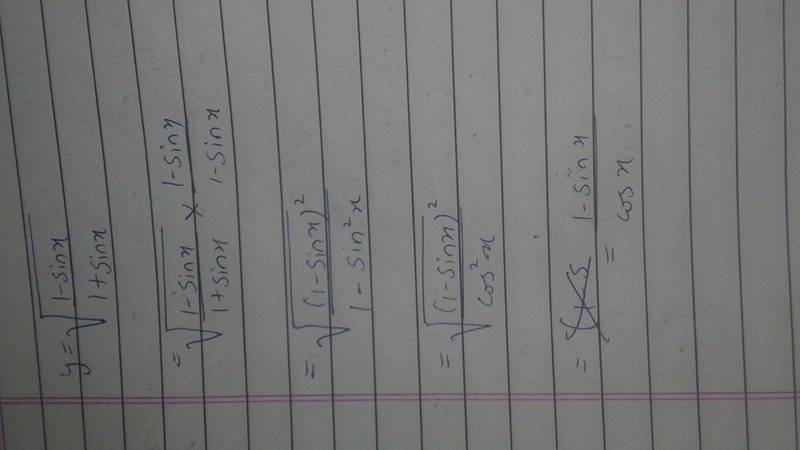 y = √((1-sinx)/(1+sinx))
= √((1-sinx)/(1+sinx) × (1-sinx)/(1-sinx))
= √((1-sinx)²/(1-sin²x))
= √((1-sinx)²/cos²x)
= (1-sinx)/(cosx)
=